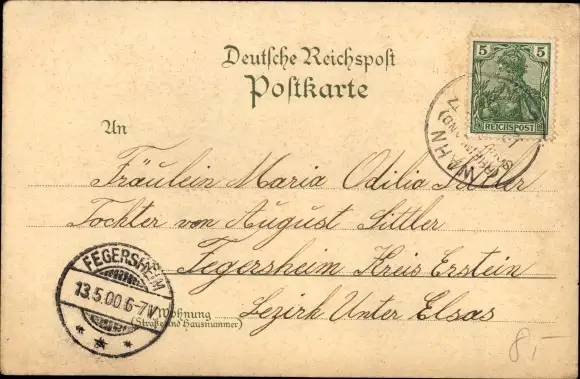 Deutsche Reichspost
Postkarte
5 5
REICHSPOST
WAHN
(RHEINLAND)
An
Fräulein Maria Odilia Sittler
Tochter von August Sittler
Fegersheim Kreis Erstein
Bezirk Unter Elsas
FEGERSHEIM
13.5.00 6-7V.
Wohnung
(Straße und Hausnummer)
8,-